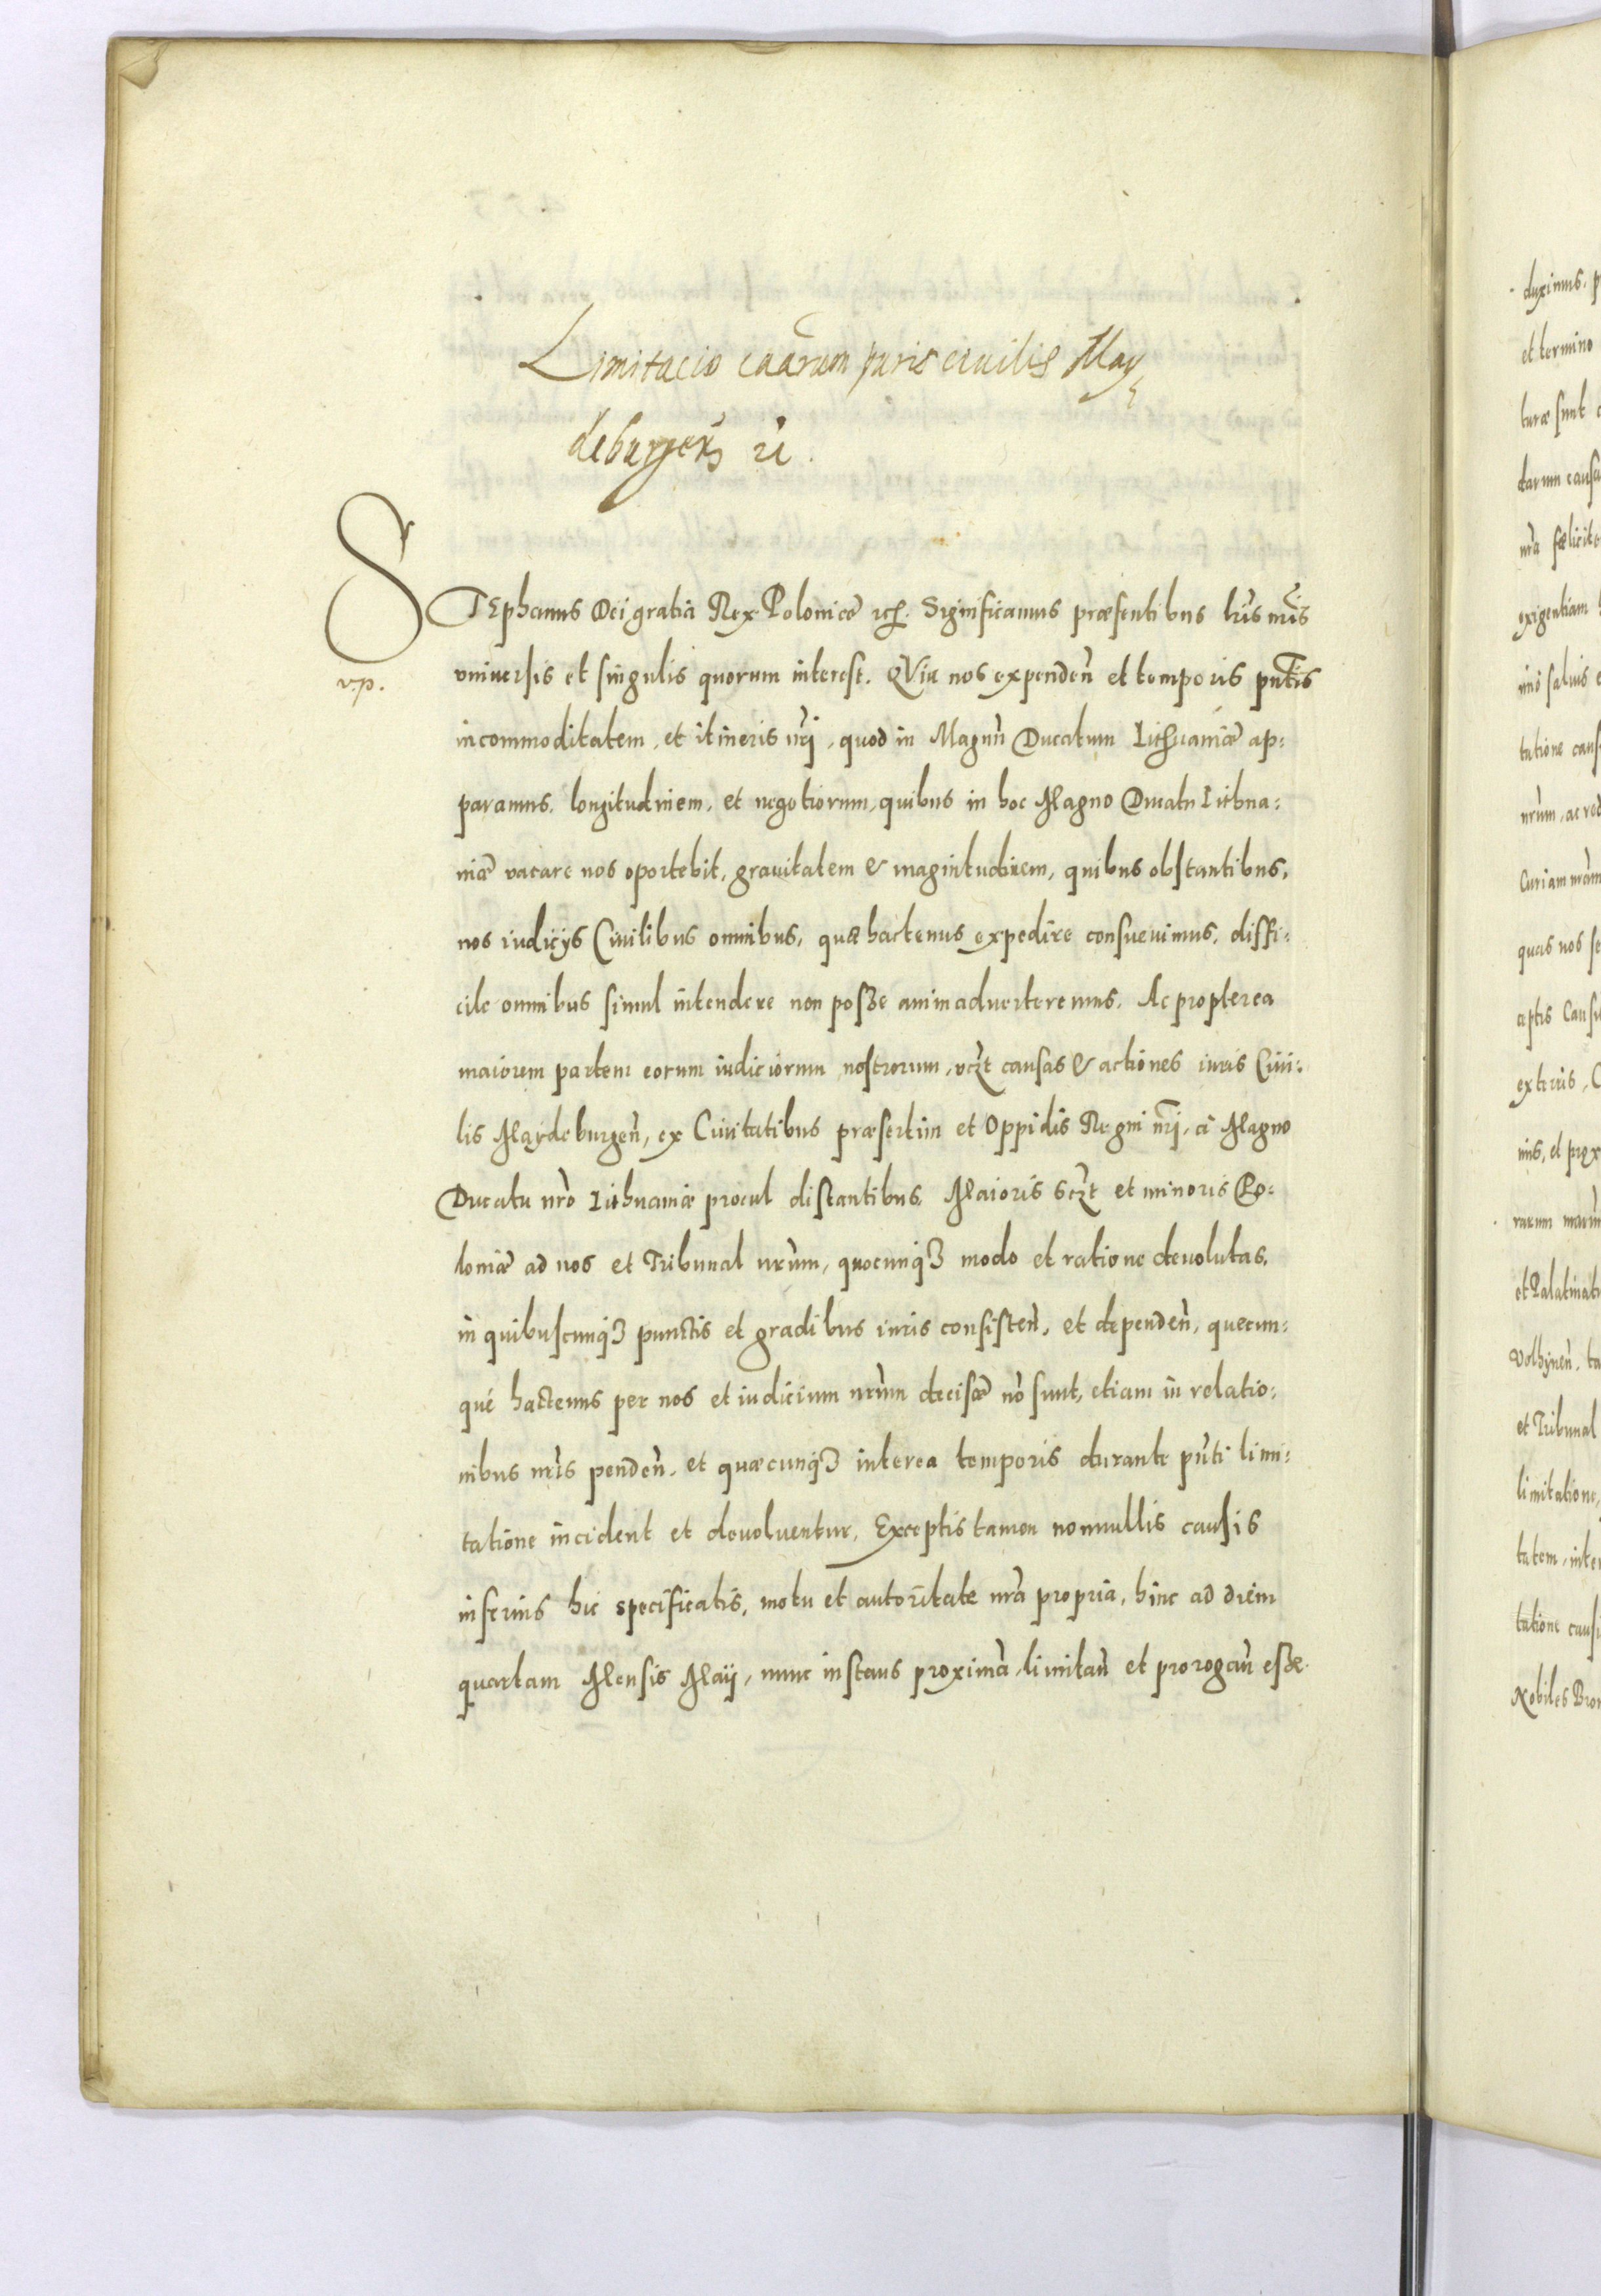 Limitacio caārum juris ciuilis May
deburgen̄ rc̄.
STEphanus Dei gratia Rex Poloniæ rcꝭ. Significamus præsentibus lr̄is nr̄is
v.p.
vniuersis et singulis quorum interest. QVia nos expenden̄ et temporis pn̄tis
incommoditatem, et itineris nr̄j, quod in Magnū Ducatum Lithuaniæ ap:
paramus, longitudinem, et negotiorum, quibus in hoc Magno Ducatu Lithua:
niæ vacare nos oportebit, grauitatem & magnitudinem, quibus obstantibus,
nos iudicijs Ciuilibus omnibus, quæ hactenus expedire consueuimus, diffi:
cile omnibus simul intendere non posse animaduerteremus. Ac propterea
maiorem partem eorum iudiciorum nostrorum, vczt causas & actiones iuris Ciui:
lis Maydeburgen̄, ex Ciuitatibus præsertim et Oppidis Regni nr̄j, à Magno
Ducatu nr̄o Lithuaniæ procul distantibus, Maioris sczt et minoris Po:
loniæ ad nos et Tribunal nr̄um, quocunqꝫ modo et ratione deuolutas,
in quibuscunqꝫ punctis et gradibus iuris consisten̄, et dependen̄, quæcun:
qué hactenus per nos et iudicium nr̄um decisæ nō sunt, etiam in relatio:
nibus nr̄is penden̄, et quæcunqꝫ interea temporis durante pn̄ti limi:
tatione incident et deuoluentur, Exceptis tamen nonnullis causis
inferius hic specificatis, motu et autoritate nr̄a propria, hinc ad diem
quartam Mensis Maij, nunc instans proximā, limitan̄ et prorogan̄ esse
duximus, p
et termino
turæ sunt
darum causa
nr̄a fælicite
exigentiam
nino saluis
tatione caus
nr̄um, ac red
Curiam nr̄am
quas nos se
aptis Causi
exteris, C
nis, et prox
et Palatinatu
Volhynen̄, ta
et Tribunal
limitatione,
tatem, inter
tatione causa
Nobiles Bro